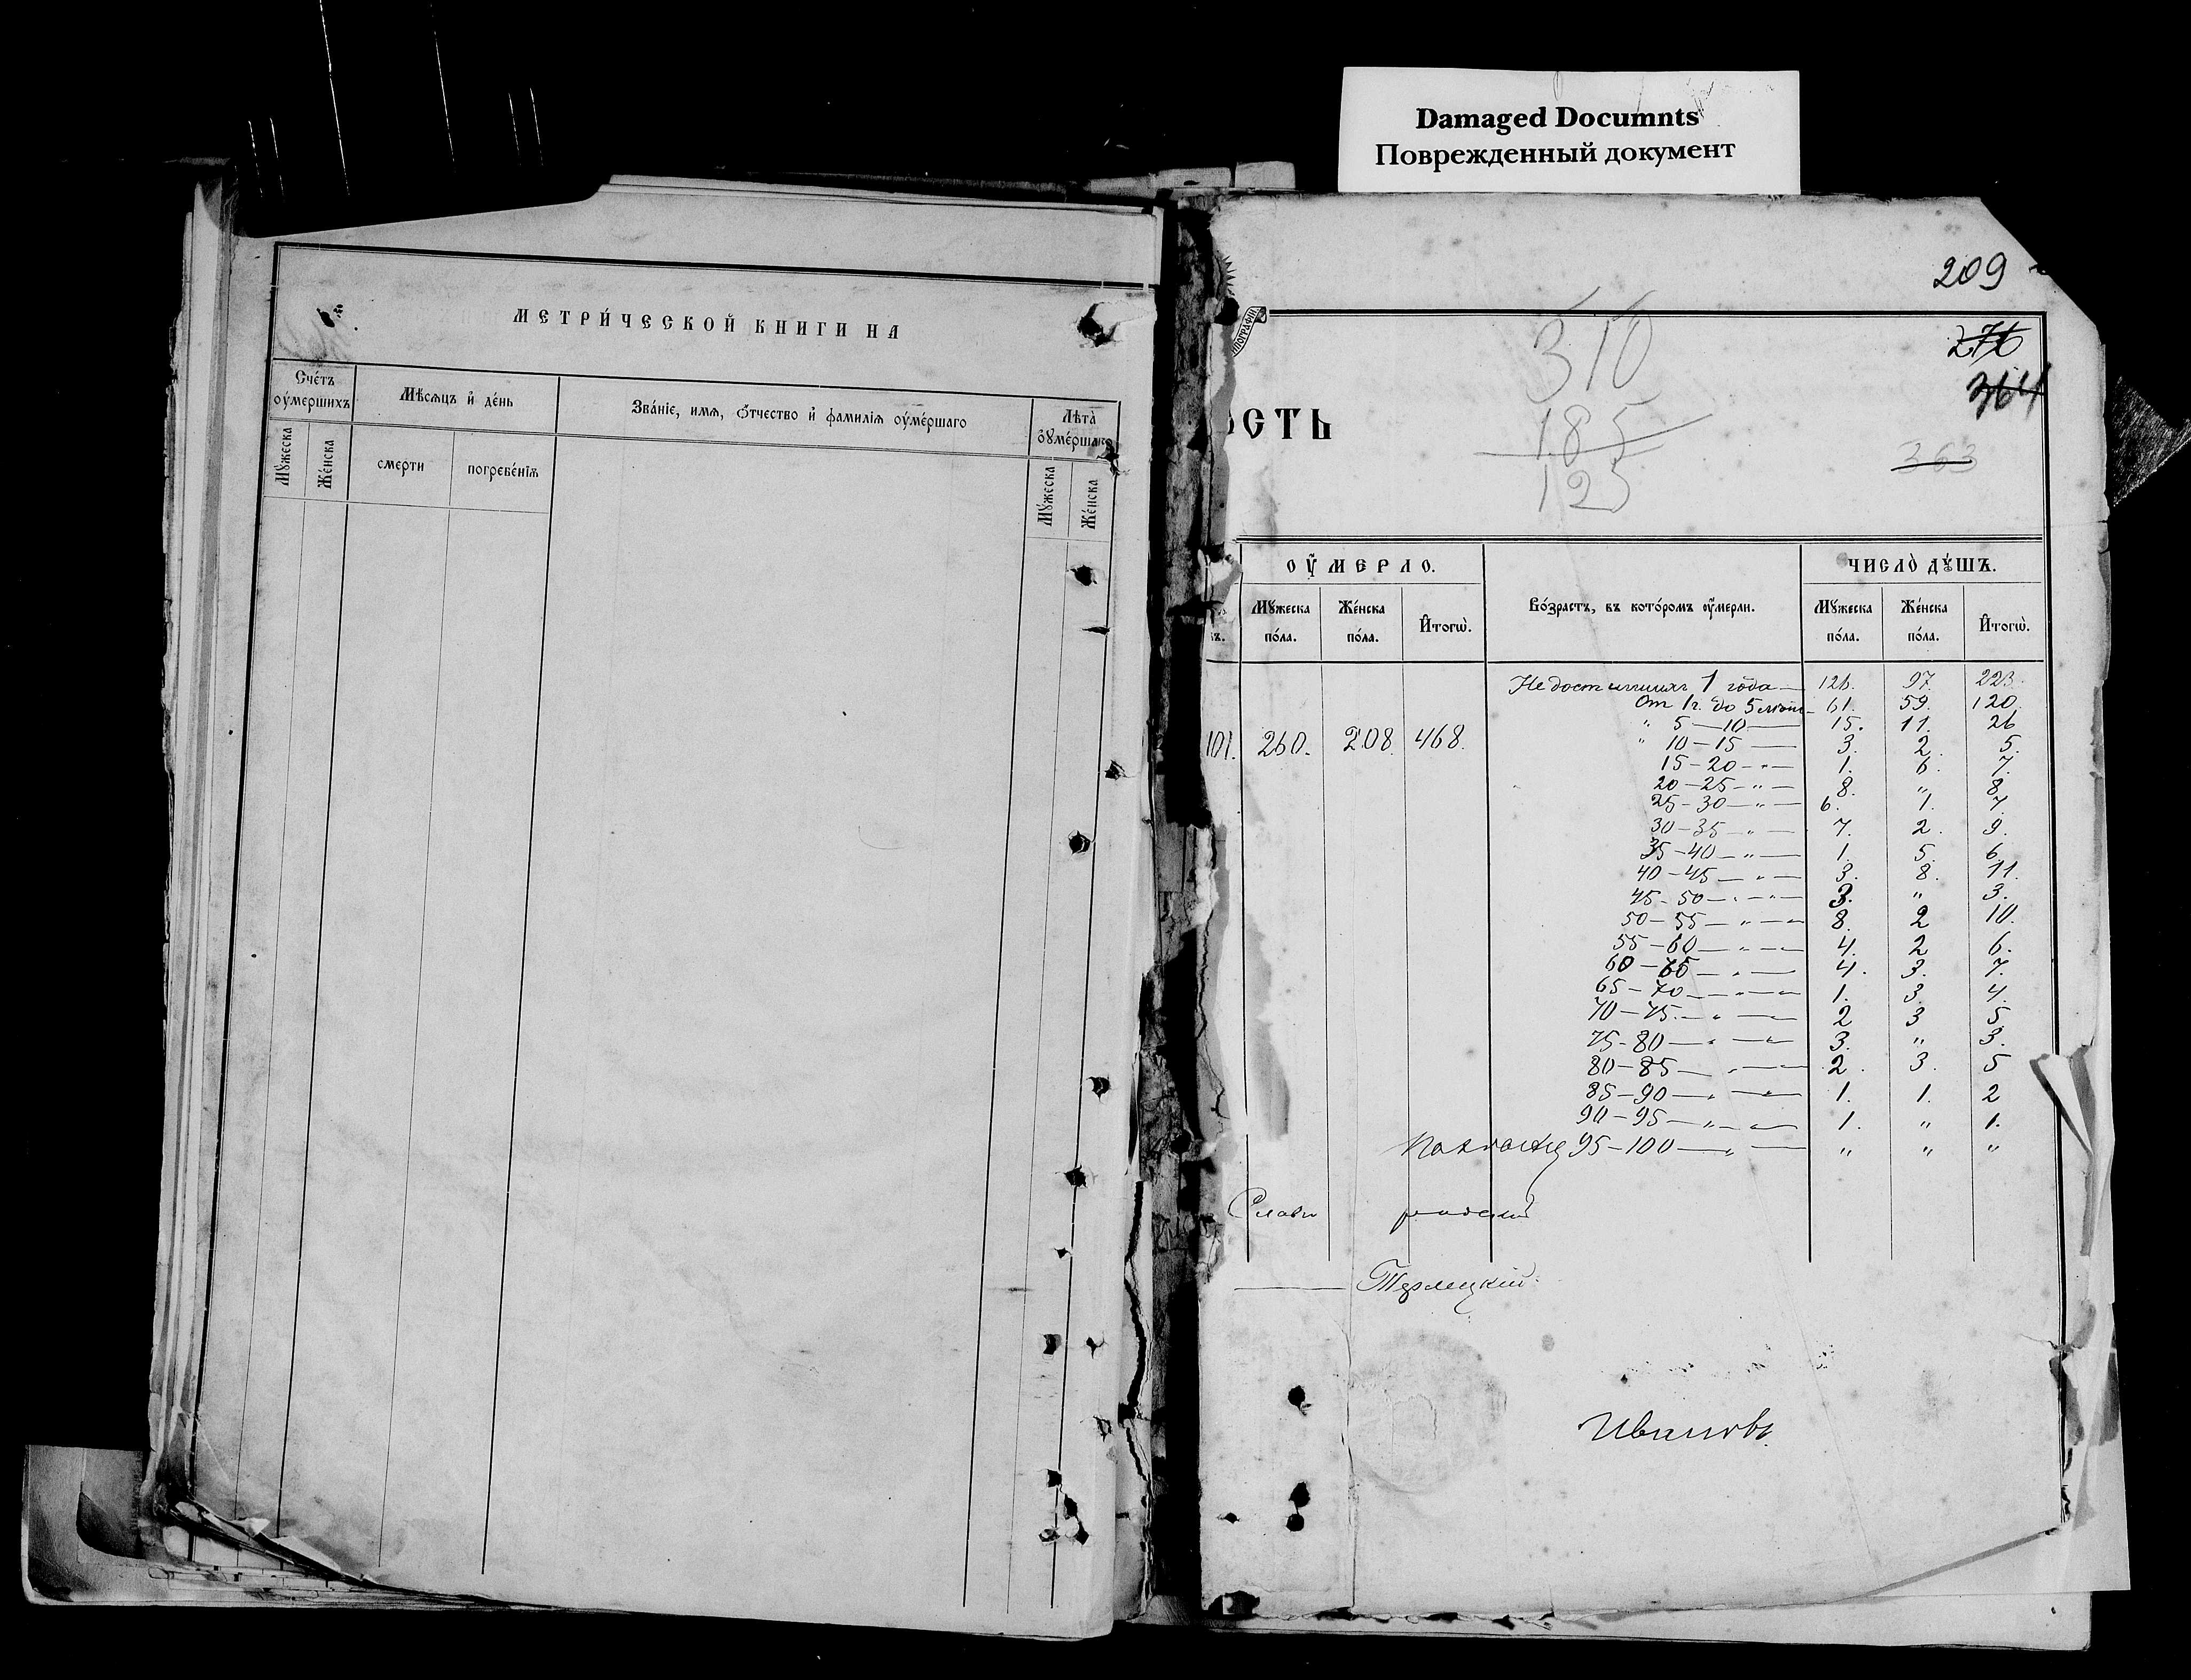 Damaged Documnts
Поврежденный документ
МЕТРИ́ЧЕСКОЙ КНИГИ НА
Сче́тъ оу҆ме́ршихъ
Мѣ́сяцъ и҆ де́нь
Зва́нїе, имѧ, ѻ҆́тчество и҆ фами́лїѧ оу҆ме́ршаго
Лѣта̀ оу҆ме́ршаго
Мꙋ́жеска
Же́нска
смерти
погребе́нїѧ
Мꙋ́жеска
Же́нска
209
276
364
363
310
185
125
СТЬ
ТИПОГРАФІИ
ОУ҆МЕРЛО.
Во́зрастъ, въ кото́ромъ оу҆́мерли.
ЧИСЛО̀ ДꙊ́ШЪ.
Мꙋ́жеска по́ла.
Же́нска по́ла.
И҆тогѡ̀.
Мꙋ́жеска по́ла.
Же́нска по́ла.
И҆тогѡ̀.
Не достигшихъ 1 года — 126. 97. 223.
От 1 г. до 5 лѣтъ — 61. 59. 120.
" 5 — 10 — 15. 11. 26
101. 260. 208. 468.
" 10 — 15 — 3. 2. 5.
15 — 20 — " — 1. 6. 7.
20 — 25 — " — 8. " 8.
25 — 30 — " — 6. 1. 7.
30 — 35 — " — 7. 2. 9.
35 — 40 — " — 1. 5. 6.
40 — 45 — " — 3. 8. 11.
45 — 50 — " — 3. " 3.
50 — 55 — " — 8. 2 10.
55 — 60 — " — 4. 2 6.
60 — 65 — " — 4. 3. 7.
65 — 70 — " — 1. 3. 4.
70 — 75 — " — 2 3 5
75 — 80 — " — 3. " 3.
80 — 85 — " — 2. 3. 5
85 — 90 — " — 1. 1. 2
90 — 95 — " — 1. " 1.
95 — 100 — " — " " "
Терлецкій
Ивановъ